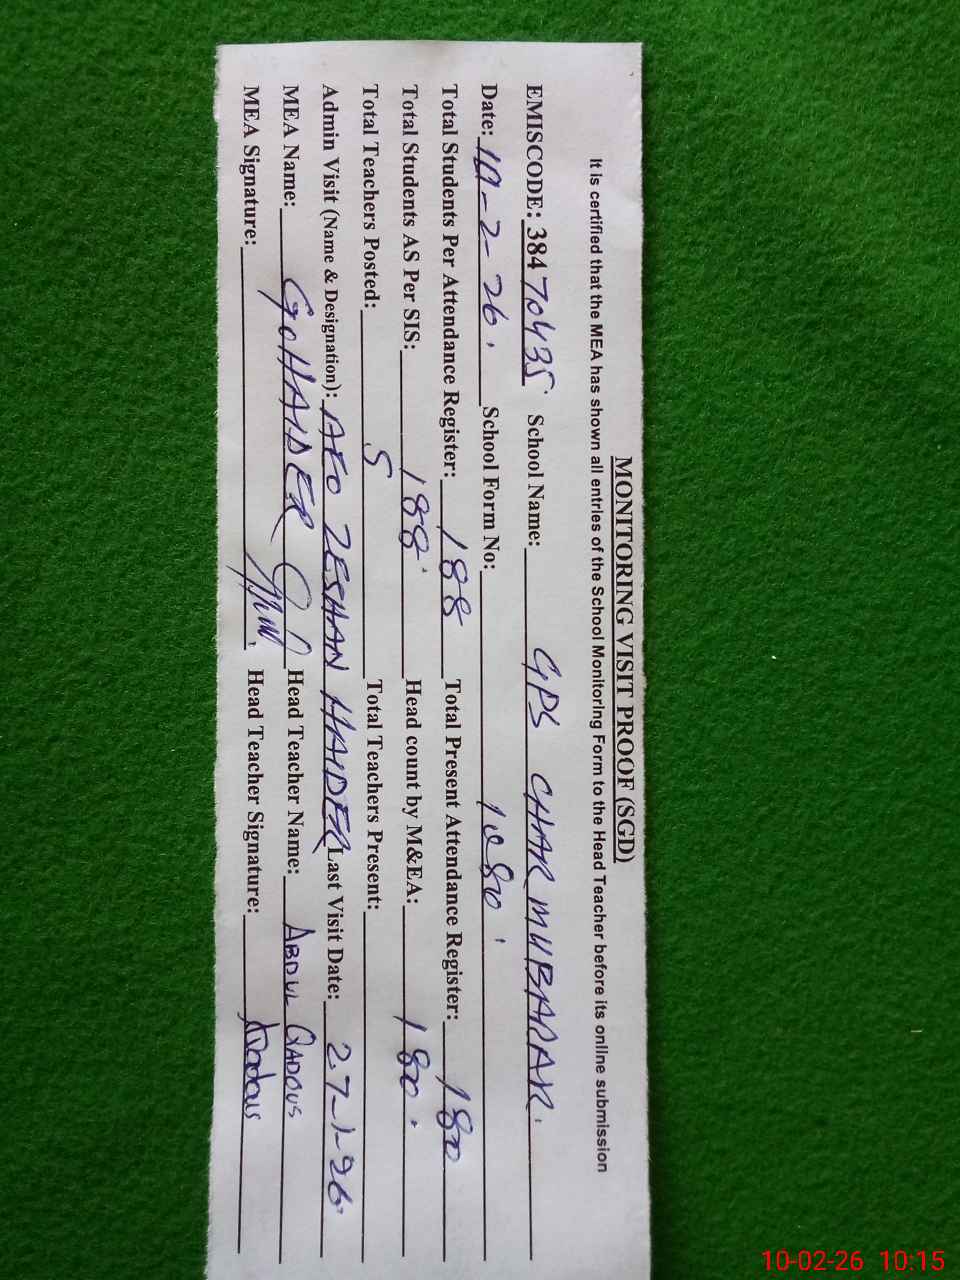 MONITORING VISIT PROOF (SGD)
It is certified that the MEA has shown all entries of the School Monitoring Form to the Head Teacher before its online submission
EMISCODE: 38470435 School Name: GPS CHAK MUBARAK.
Date: 10-2-26. School Form No: 1080.
Total Students Per Attendance Register: 188 Total Present Attendance Register: 180
Total Students AS Per SIS: 188 Head count by M&EA: 180.
Total Teachers Posted: 5 Total Teachers Present:
Admin Visit (Name & Designation): AEO ZESHAN HAIDER Last Visit Date: 27-1-26.
MEA Name: HAIDER Head Teacher Name: ABDUL QADOUS
MEA Signature: Head Teacher Signature: Qadous
10-02-26 10:15